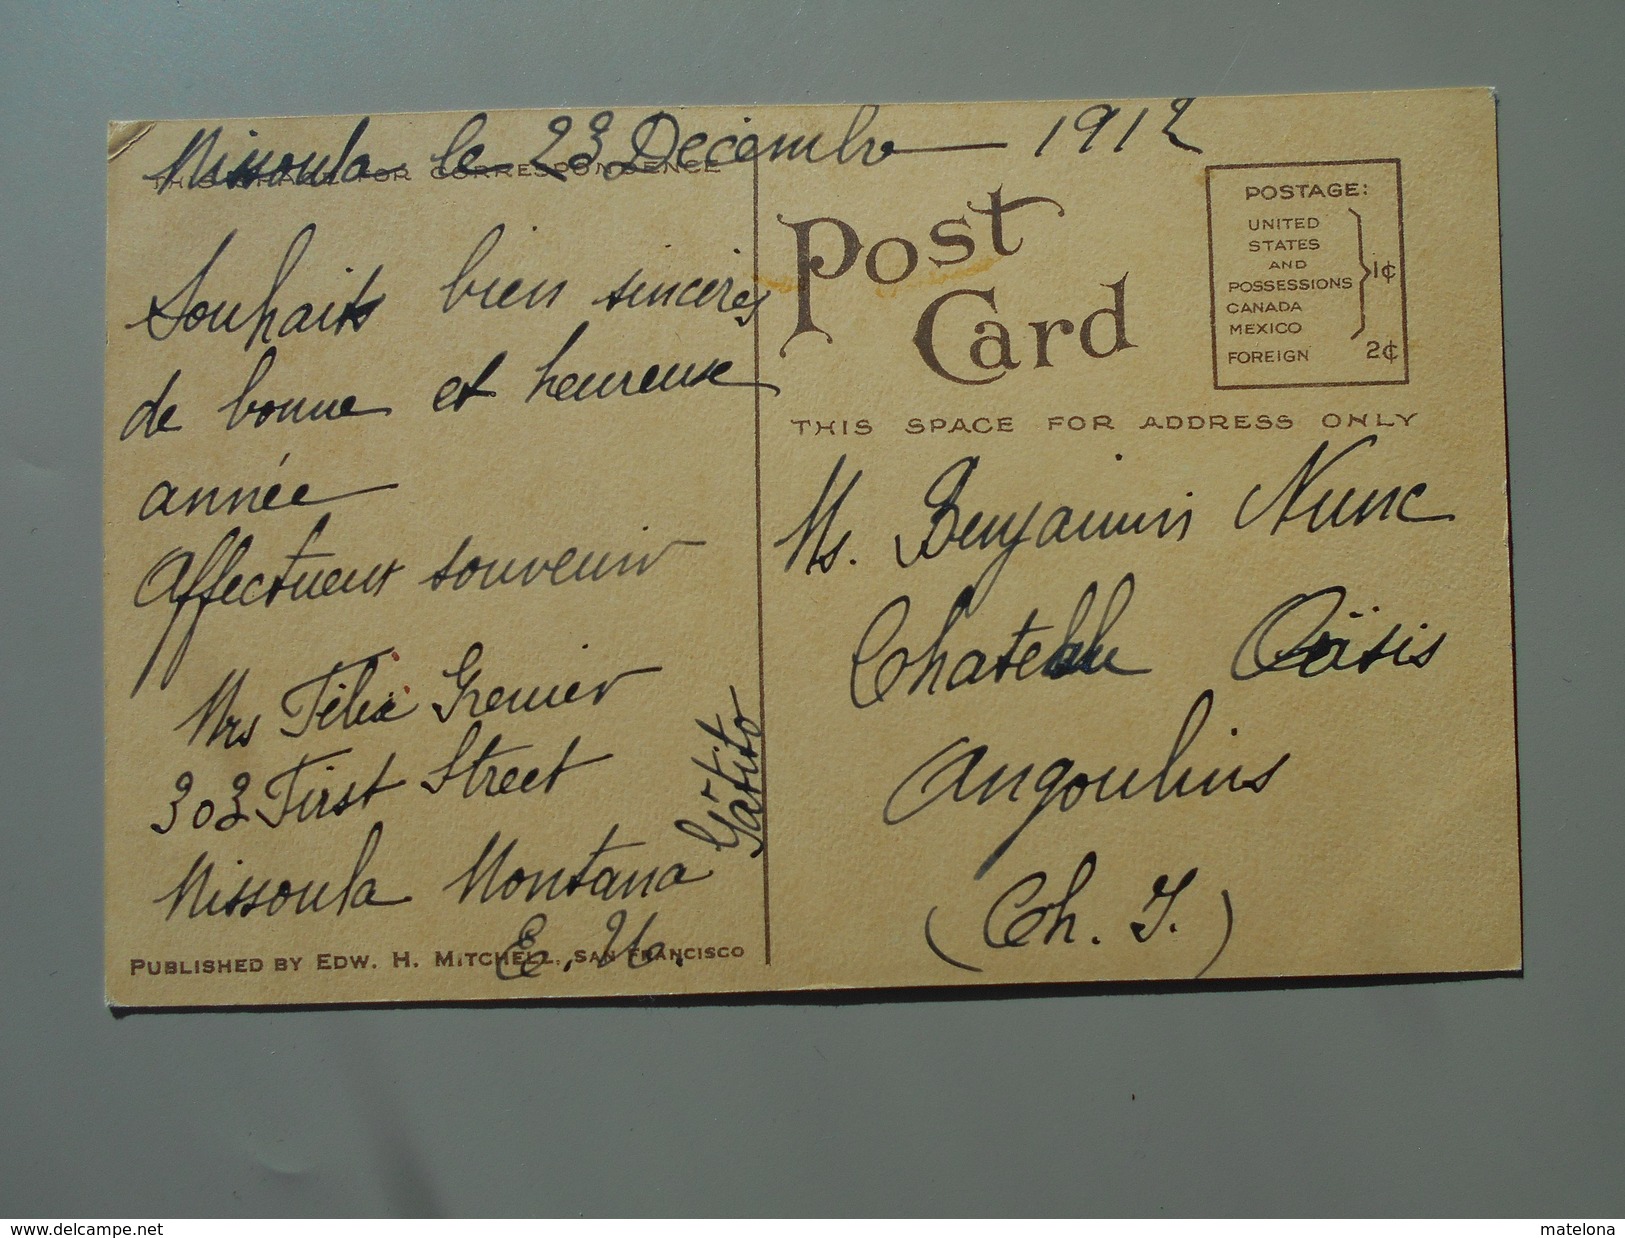 Missoula le 23 Décembre 1912
THIS SPACE FOR CORRESPONDENCE
Souhaits bien sincères
de bonne et heureuse
année
Affectueux souvenir
Mrs Félix Grenier
303 First Street
Missoula Montana
E. U.
PUBLISHED BY EDW. H. MITCHELL, SAN FRANCISCO
POST
CARD
POSTAGE:
UNITED
STATES
AND
POSSESSIONS
CANADA
MEXICO
1¢
FOREIGN 2¢
THIS SPACE FOR ADDRESS ONLY
Ms. Benjamin
Angoulins
(Ch. I.)
www.delcampe.net
matelona